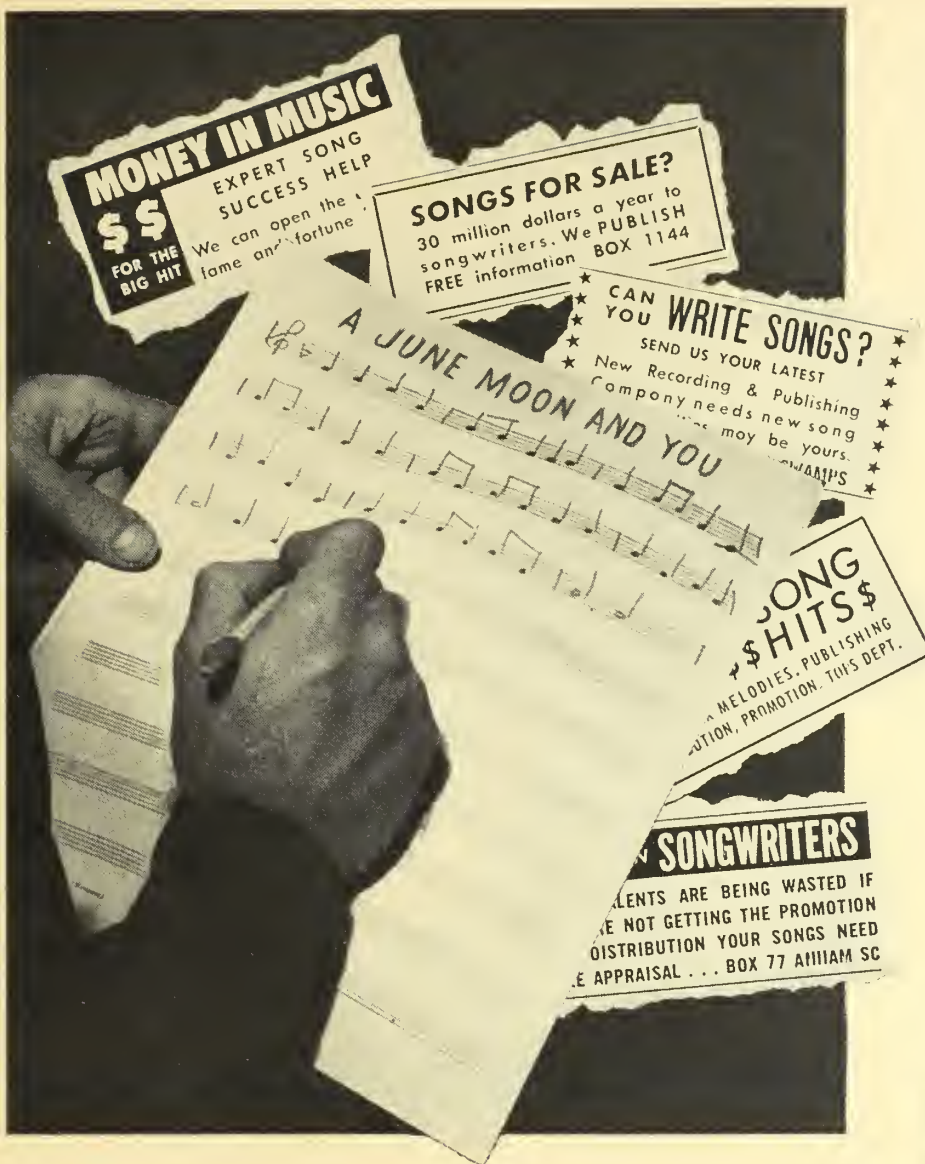 MONEY IN MUSIC
$$
FOR THE
BIG HIT
EXPERT SONG
SUCCESS HELP
We can open the
fame and fortune
SONGS FOR SALE?
30 million dollars a year to
songwriters. We PUBLISH
FREE information BOX 1144
CAN
YOU
WRITE SONGS?
SEND US YOUR LATEST
New Recording & Publishing
Compony needs new song
moy be yours.
A JUNE MOON AND YOU
$HITS$
MELODIES. PUBLISHING
PROMOTION. DEPT.
SONGWRITERS
ARE BEING WASTED IF
NOT GETTING THE PROMOTION
DISTRIBUTION YOUR SONGS NEED
APPRAISAL . . . BOX 77